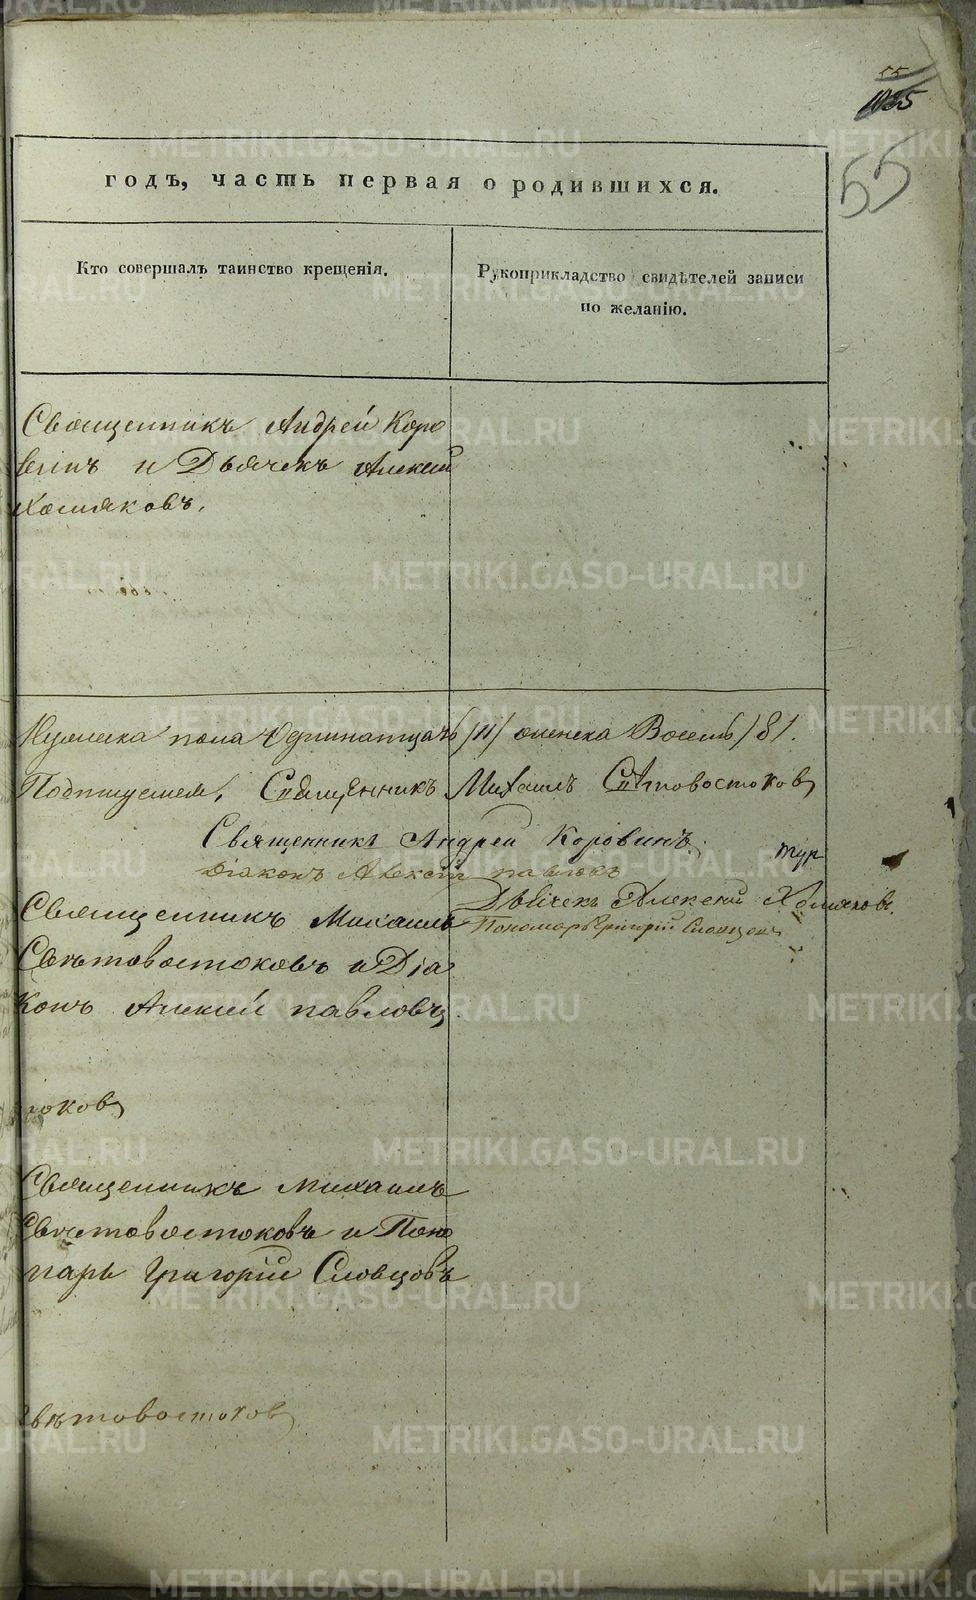 55
1035
55
годъ, часть первая о родившихся.
Кто совершалъ таинство крещенія.
Рукоприкладство свидѣтелей записи
по желанію.
Священникъ Андрей Коро
винъ и Дьячекъ Алексій
Хомяковъ.
пола Одинатцать /11/ женска Восемь /8/.
Священникъ Михаилъ Свѣтовостоковъ
Священникъ Андрей Коровинъ.
Діаконъ Алексій
Дьячекъ Алексей Хомяковъ.
Пономарь Григорій Словцовъ
Священникъ Михаилъ
Свѣтовостоковъ и Діа
конъ Алексій Павловъ
Священникъ Михаилъ
Свѣтовостоковъ и Поно
марь Григорій Словцовъ
Свѣтовостоковъ
METRIKI.GASO-URAL.RU